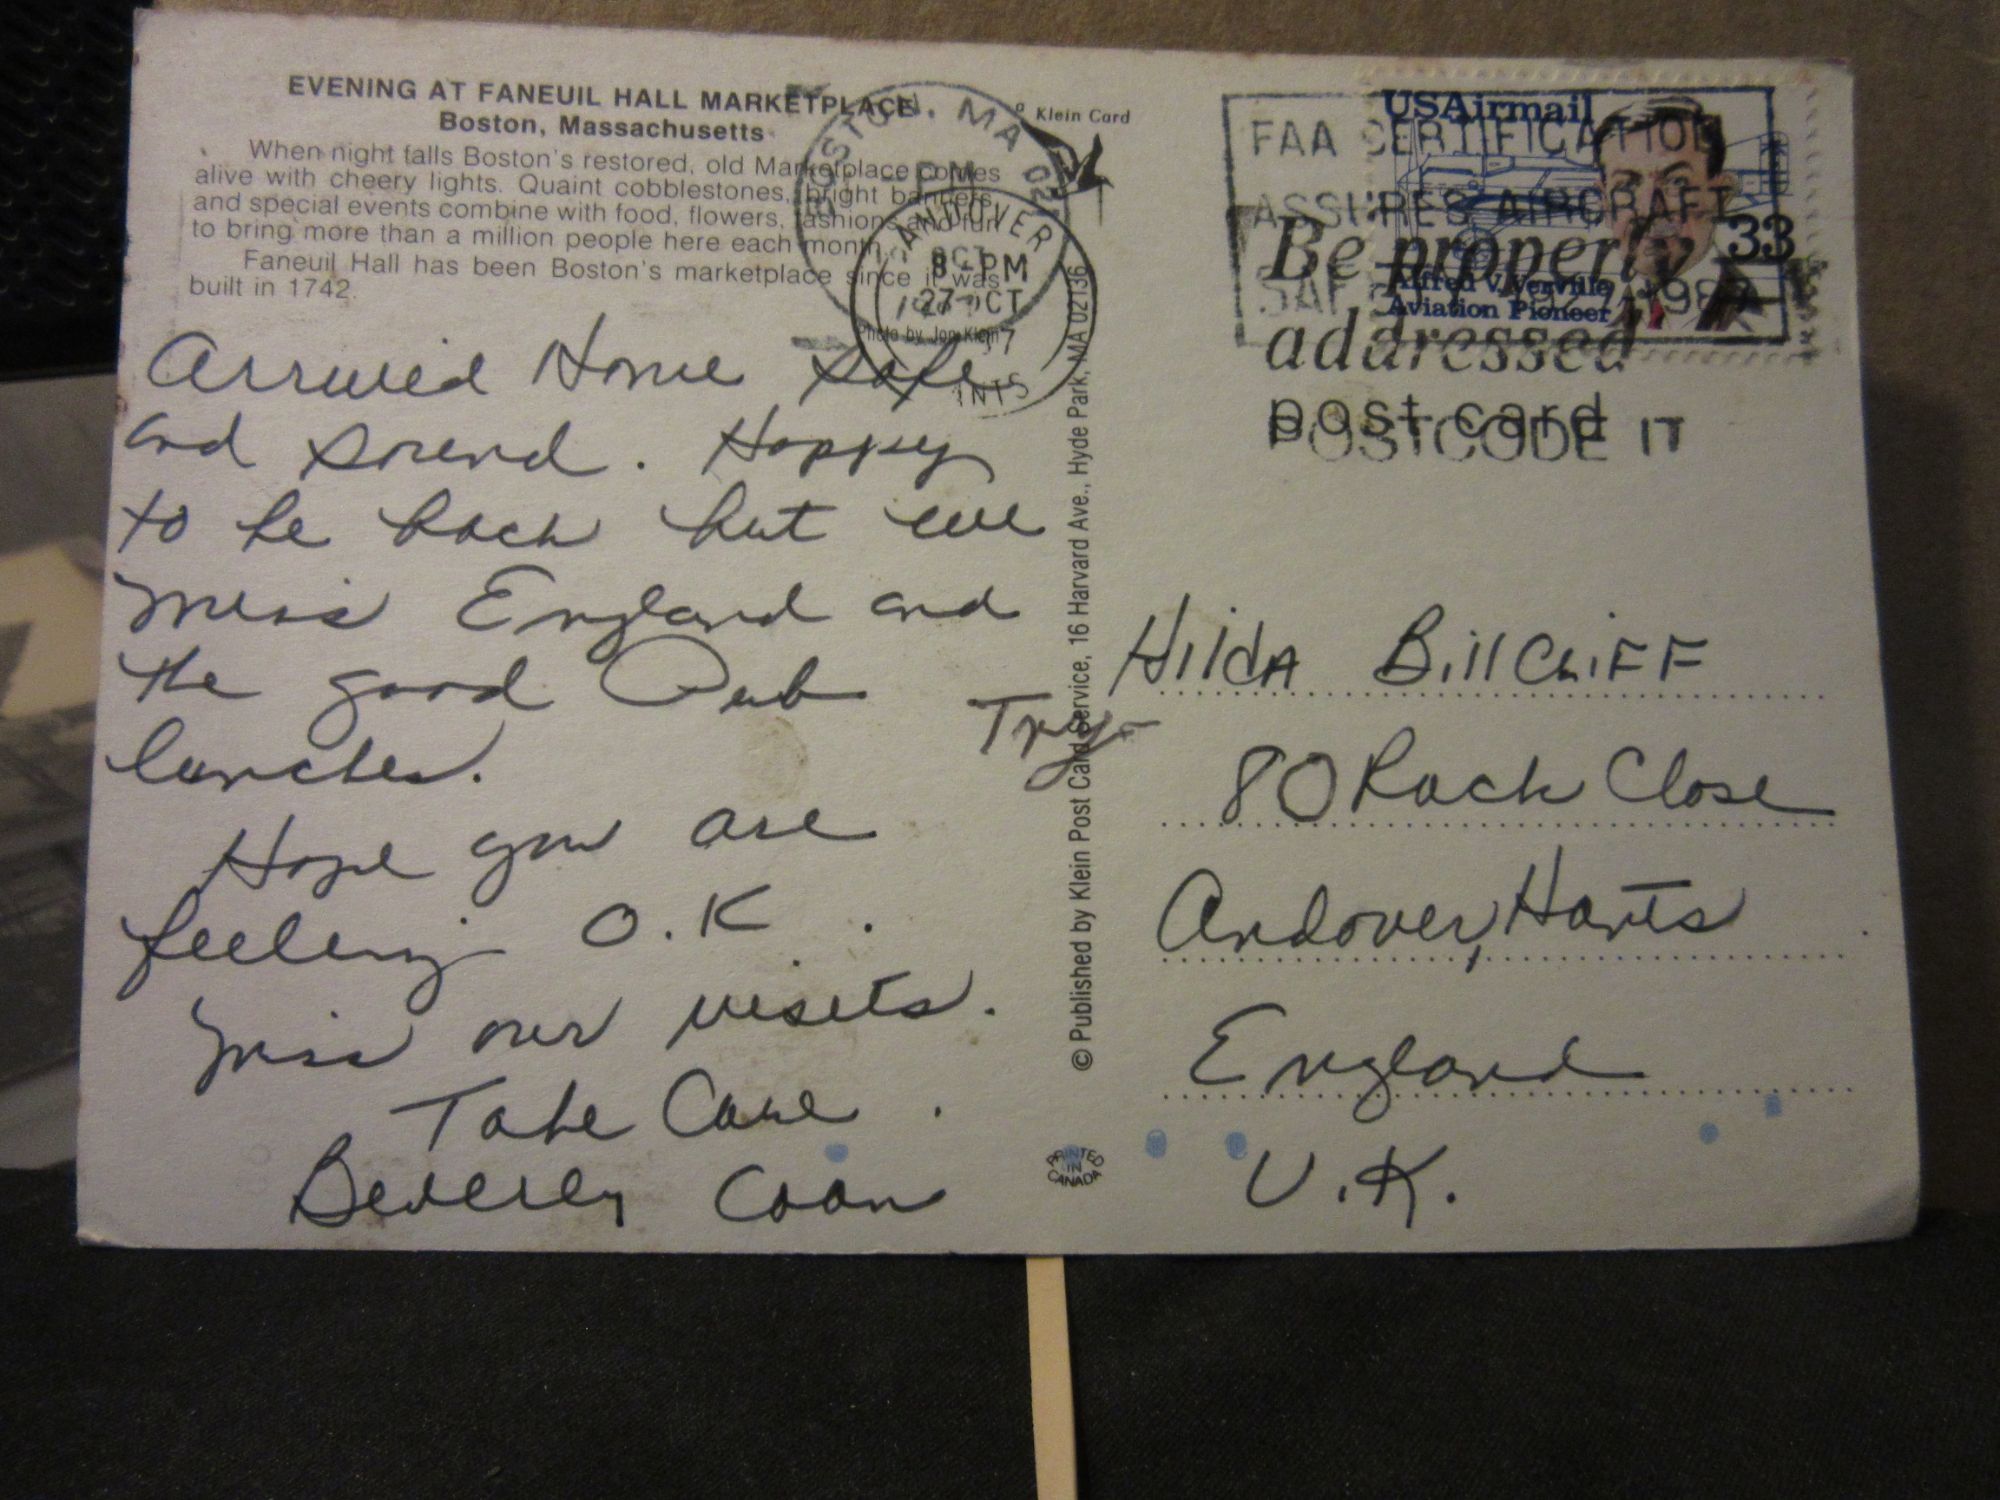 EVENING AT FANEUIL HALL MARKETPLACE
Boston, Massachusetts
When night falls Boston's restored, old Marketplace comes
alive with cheery lights. Quaint cobblestones, bright banners,
and special events combine with food, flowers, fashions and fun
to bring more than a million people here each month.
Faneuil Hall has been Boston's marketplace since it was
built in 1742.
Photo by Jon Klein
Klein Card
BOSTON, MA 02
PM
OCT
ANDOVER
8 - PM
27 OCT
HANTS
USAirmail
33
Alfred V. Verville
Aviation Pioneer
FAA CERTIFICATION
ASSURES AIRCRAFT
1927-1987
Be properly
addressed
post card
POSTCODE IT
Arrived Home safe
and sound. Happy
to be back but we
miss England and
the good Pub
lunches.
Hope you are
feeling O.K.
Miss our visits.
Take Care.
Beverly Coon
© Published by Klein Post Card Service, 16 Harvard Ave., Hyde Park, MA 02136
Try
Hilda BillCliFF
80 Rack Close
Andover, Hants
England
U.K.
PRINTED
IN
CANADA